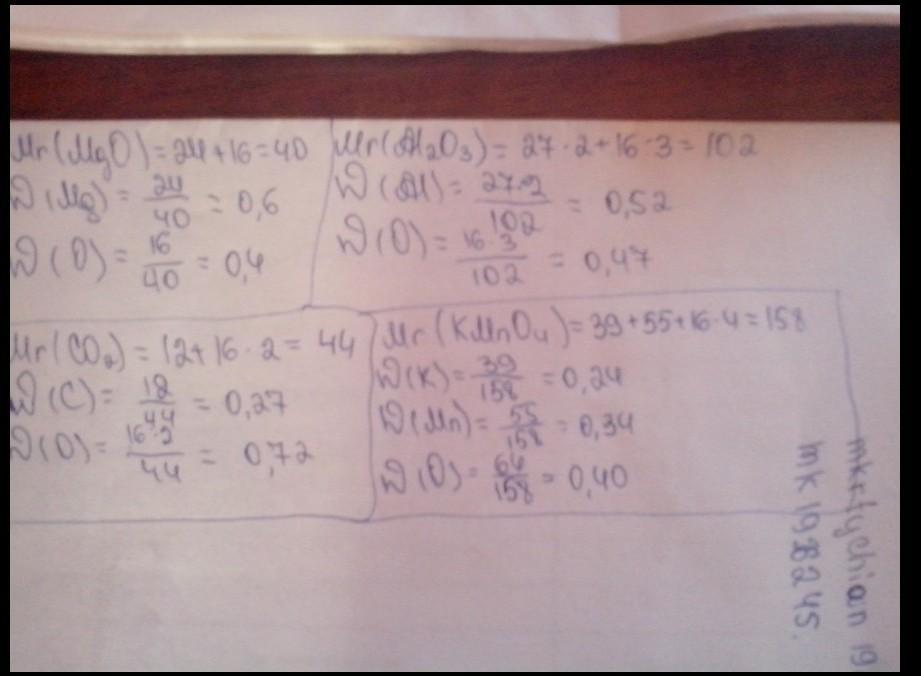 Mr(MgO)=24+16=40
W(Mg)=24/40=0,6
W(O)=16/40=0,4
Mr(Al2O3)=27·2+16·3=102
W(Al)=27·2/102=0,52
W(O)=16·3/102=0,47
Mr(CO2)=12+16·2=44
W(C)=12/44=0,27
W(O)=16·2/44=0,72
Mr(KMnO4)=39+55+16·4=158
W(K)=39/158=0,24
W(Mn)=55/158=0,34
W(O)=64/158=0,40
mkrtychian 19